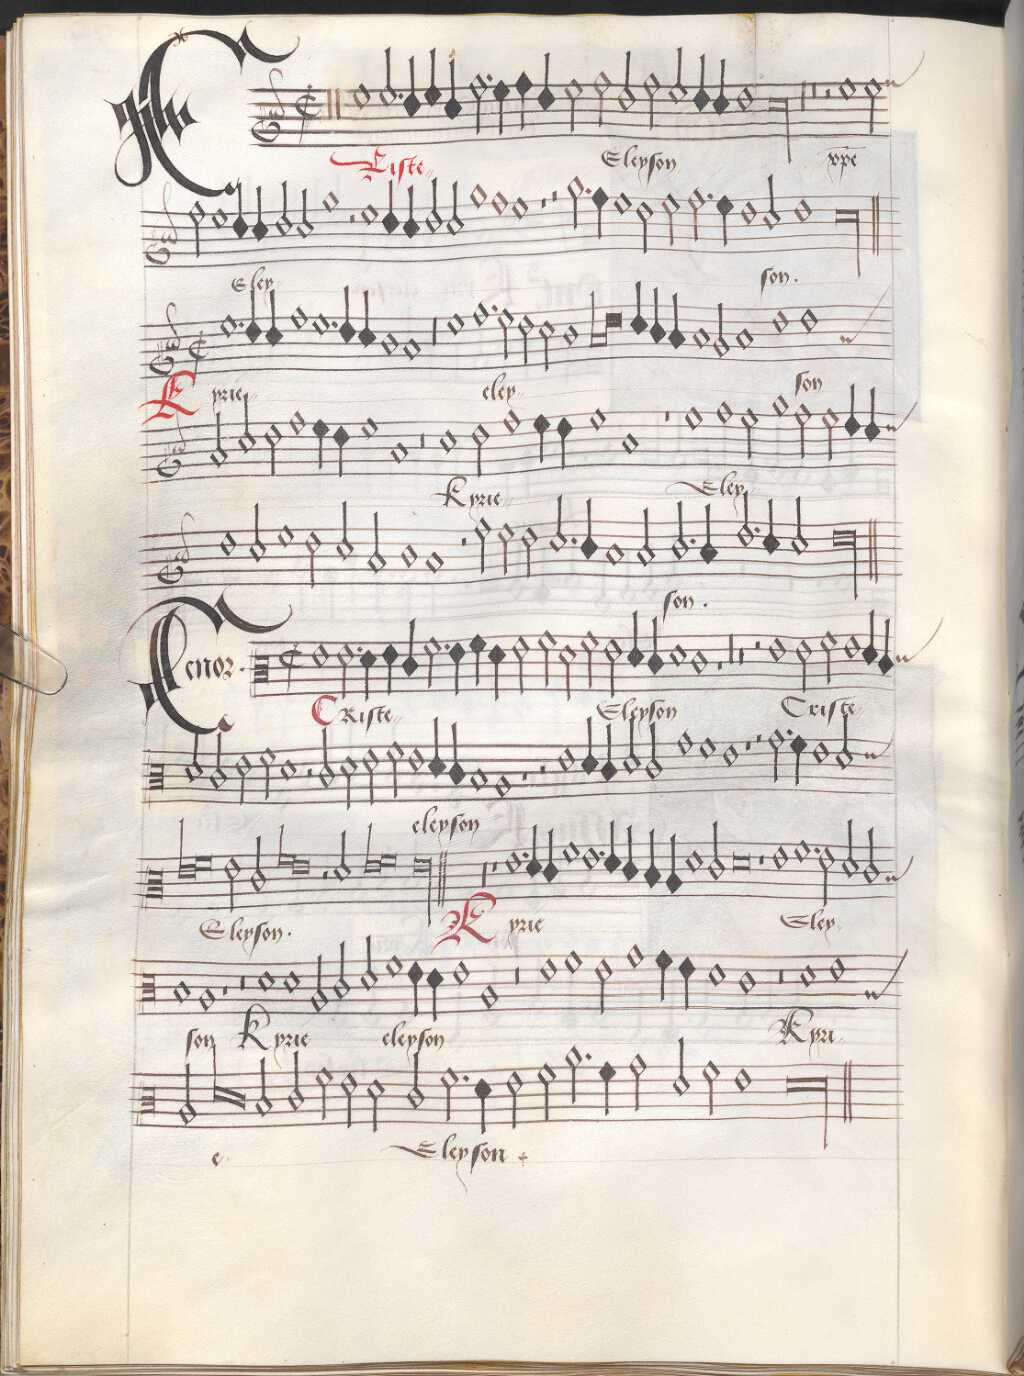 Criste Eleyson xp̄e
Eley son.
Kyrie eley son
Kyrie Eley
son.
Tenor.
CRiste Eleyson Criste
eleyson
Eleyson. Kyrie Eley
son Kyrie eleyson Kyri
e Eleyson